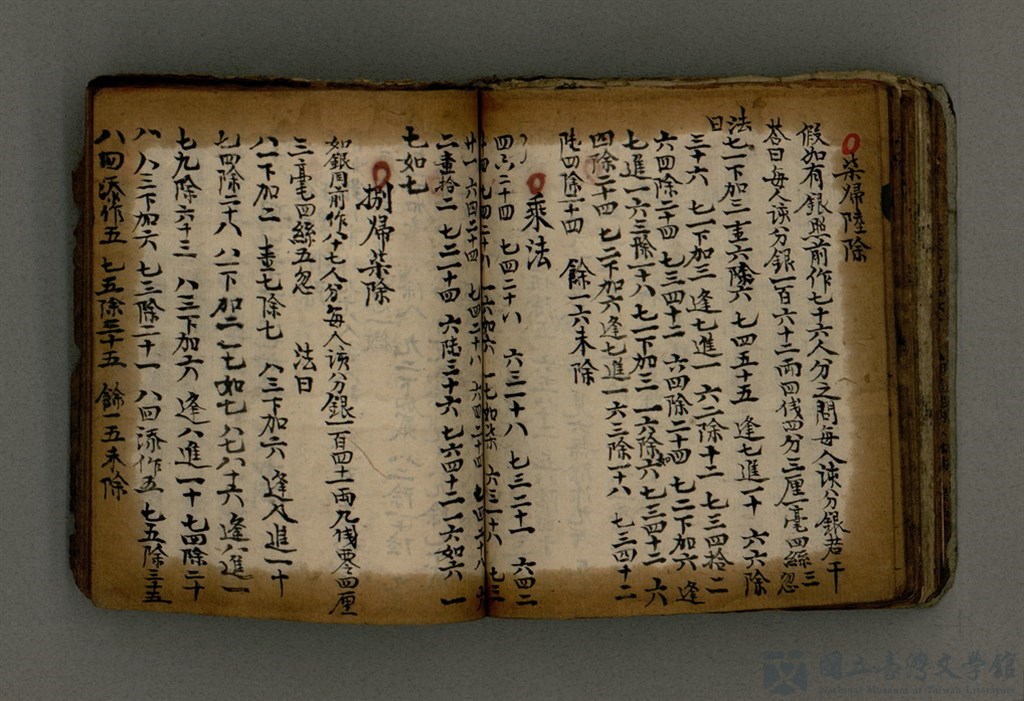 柒歸陸除
假如有銀照前作七十六人分之問每人該分銀若干
荅曰每人該分銀一百六十二兩四伐四分三厘一毫四絲三忽
法曰七一下加三 主六除六 七四五十五 逢七進一十 六六除
三十六 七一下加三 逢七進一 六二除十二 七三四拾二
六四除二十四 七三四十二 六四除二十四 七二下加六 逢
七進一 六三除一十八 七一下加三 一六除六 七三四十二 六
四除二十四 七二下加六 逢七進一 六三除一十八 七三四十二
陸四除二十四 餘一六未除
乘法
四六二十四 七四二十八 六三一十八 七三二十一 六四二
廿一 六四二十四 七四二十八 六四二十四 七四二十八
二畫拾二 七二一十四 六陸三十六 七六四十二 一六如六 一
七如七
捌歸柒除
如銀照前作八十七人分每人該分銀一百四十一兩九伐零四厘
三毫四絲五忽 法曰
八一下加二 畫七除七 八三下加六 逢八進一十
七四除二十八 八一下加二 一七如七 八七八十六 逢八進一
七九除六十三 八三下加六 逢八進一十 七四除二十
八 八三下加六 七三除二十一 八四添作五 七五除三十五
八四添作五 七五除三十五 餘一五未除
國立臺灣文學館
National Museum of Taiwan Literature